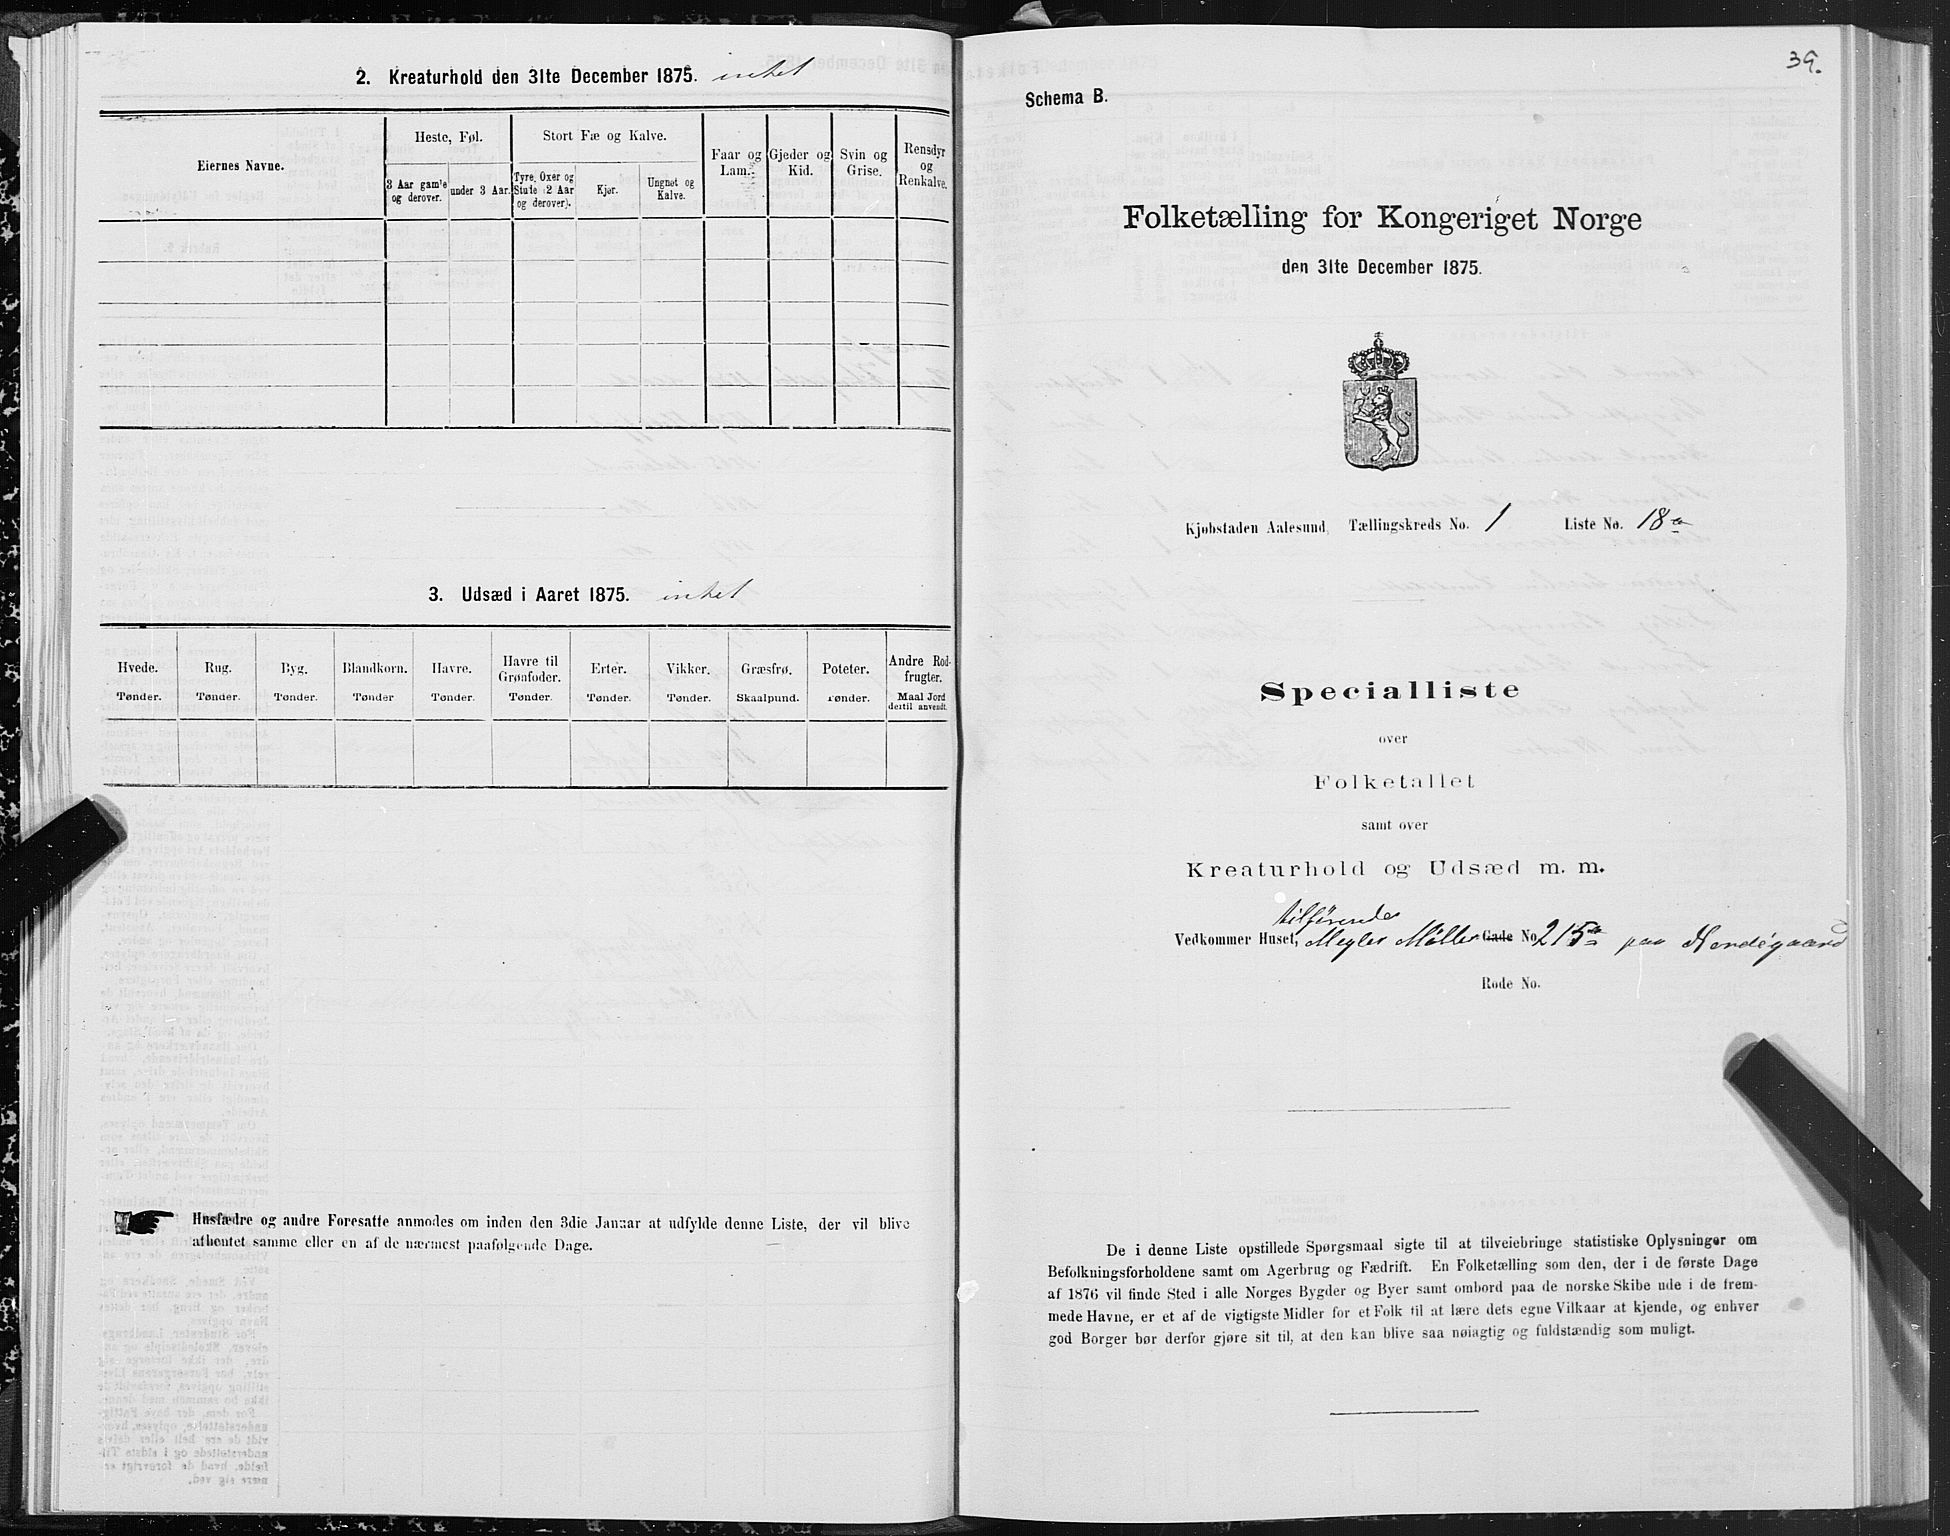 2. Kreaturhold den 31te December 1875. intet
Eiernes Navne.
Heste, Føl.
Stort Fæ og Kalve.
Faar og Lam.
Gjeder og Kid.
Svin og Grise.
Rensdyr og Renkalve.
3 Aar gamle og derover.
under 3 Aar.
Tyre, Oxer og Stute (2 Aar og derover).
Kjør.
Ungnøt og Kalve.
3. Udsæd i Aaret 1875. intet
Hvede. Rug. Byg. Blandkorn. Havre. Havre til Grønfoder. Erter. Vikker. Græsfrø. Poteter. Andre Rodfrugter.
Tønder. Tønder. Tønder. Tønder Tønder. Tønder. Tønder. Tønder. Skaalpund. Tønder. Maal Jord dertil anvendt.
Husfædre og andre Foresatte anmodes om inden den 3die Januar at udfylde denne Liste, der vil blive
afhentet samme eller en af de nærmest paafølgende Dage.
39.
Schema B.
Folketælling for Kongeriget Norge
den 31te December 1875.
Kjøbstaden Aalesund, Tællingskreds No. 1 Liste No. 18a
Specialliste
over
Folketallet
samt over
Kreaturhold og Udsæd m. m.
tilhørende
Vedkommer Huset, Megler Møller Gade No. 215a paa Nordégaard
Rode No.
De i denne Liste opstillede Spørgsmaal sigte til at tilveiebringe statistiske Oplysninger om
Befolkningsforholdene samt om Agerbrug og Fædrift. En Folketælling som den, der i de første Dage
af 1876 vil finde Sted i alle Norges Bygder og Byer samt ombord paa de norske Skibe ude i de frem-
mede Havne, er et af de vigtigste Midler for et Folk til at lære dets egne Vilkaar at kjende, og enhver
god Borger bør derfor gjøre sit til, at den kan blive saa nøiagtig og fuldstændig som muligt.